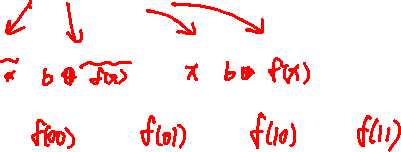 x̃ b ⊕ f̃(x) x b ⊕ f(x)
f(00) f(01) f(10) f(11)